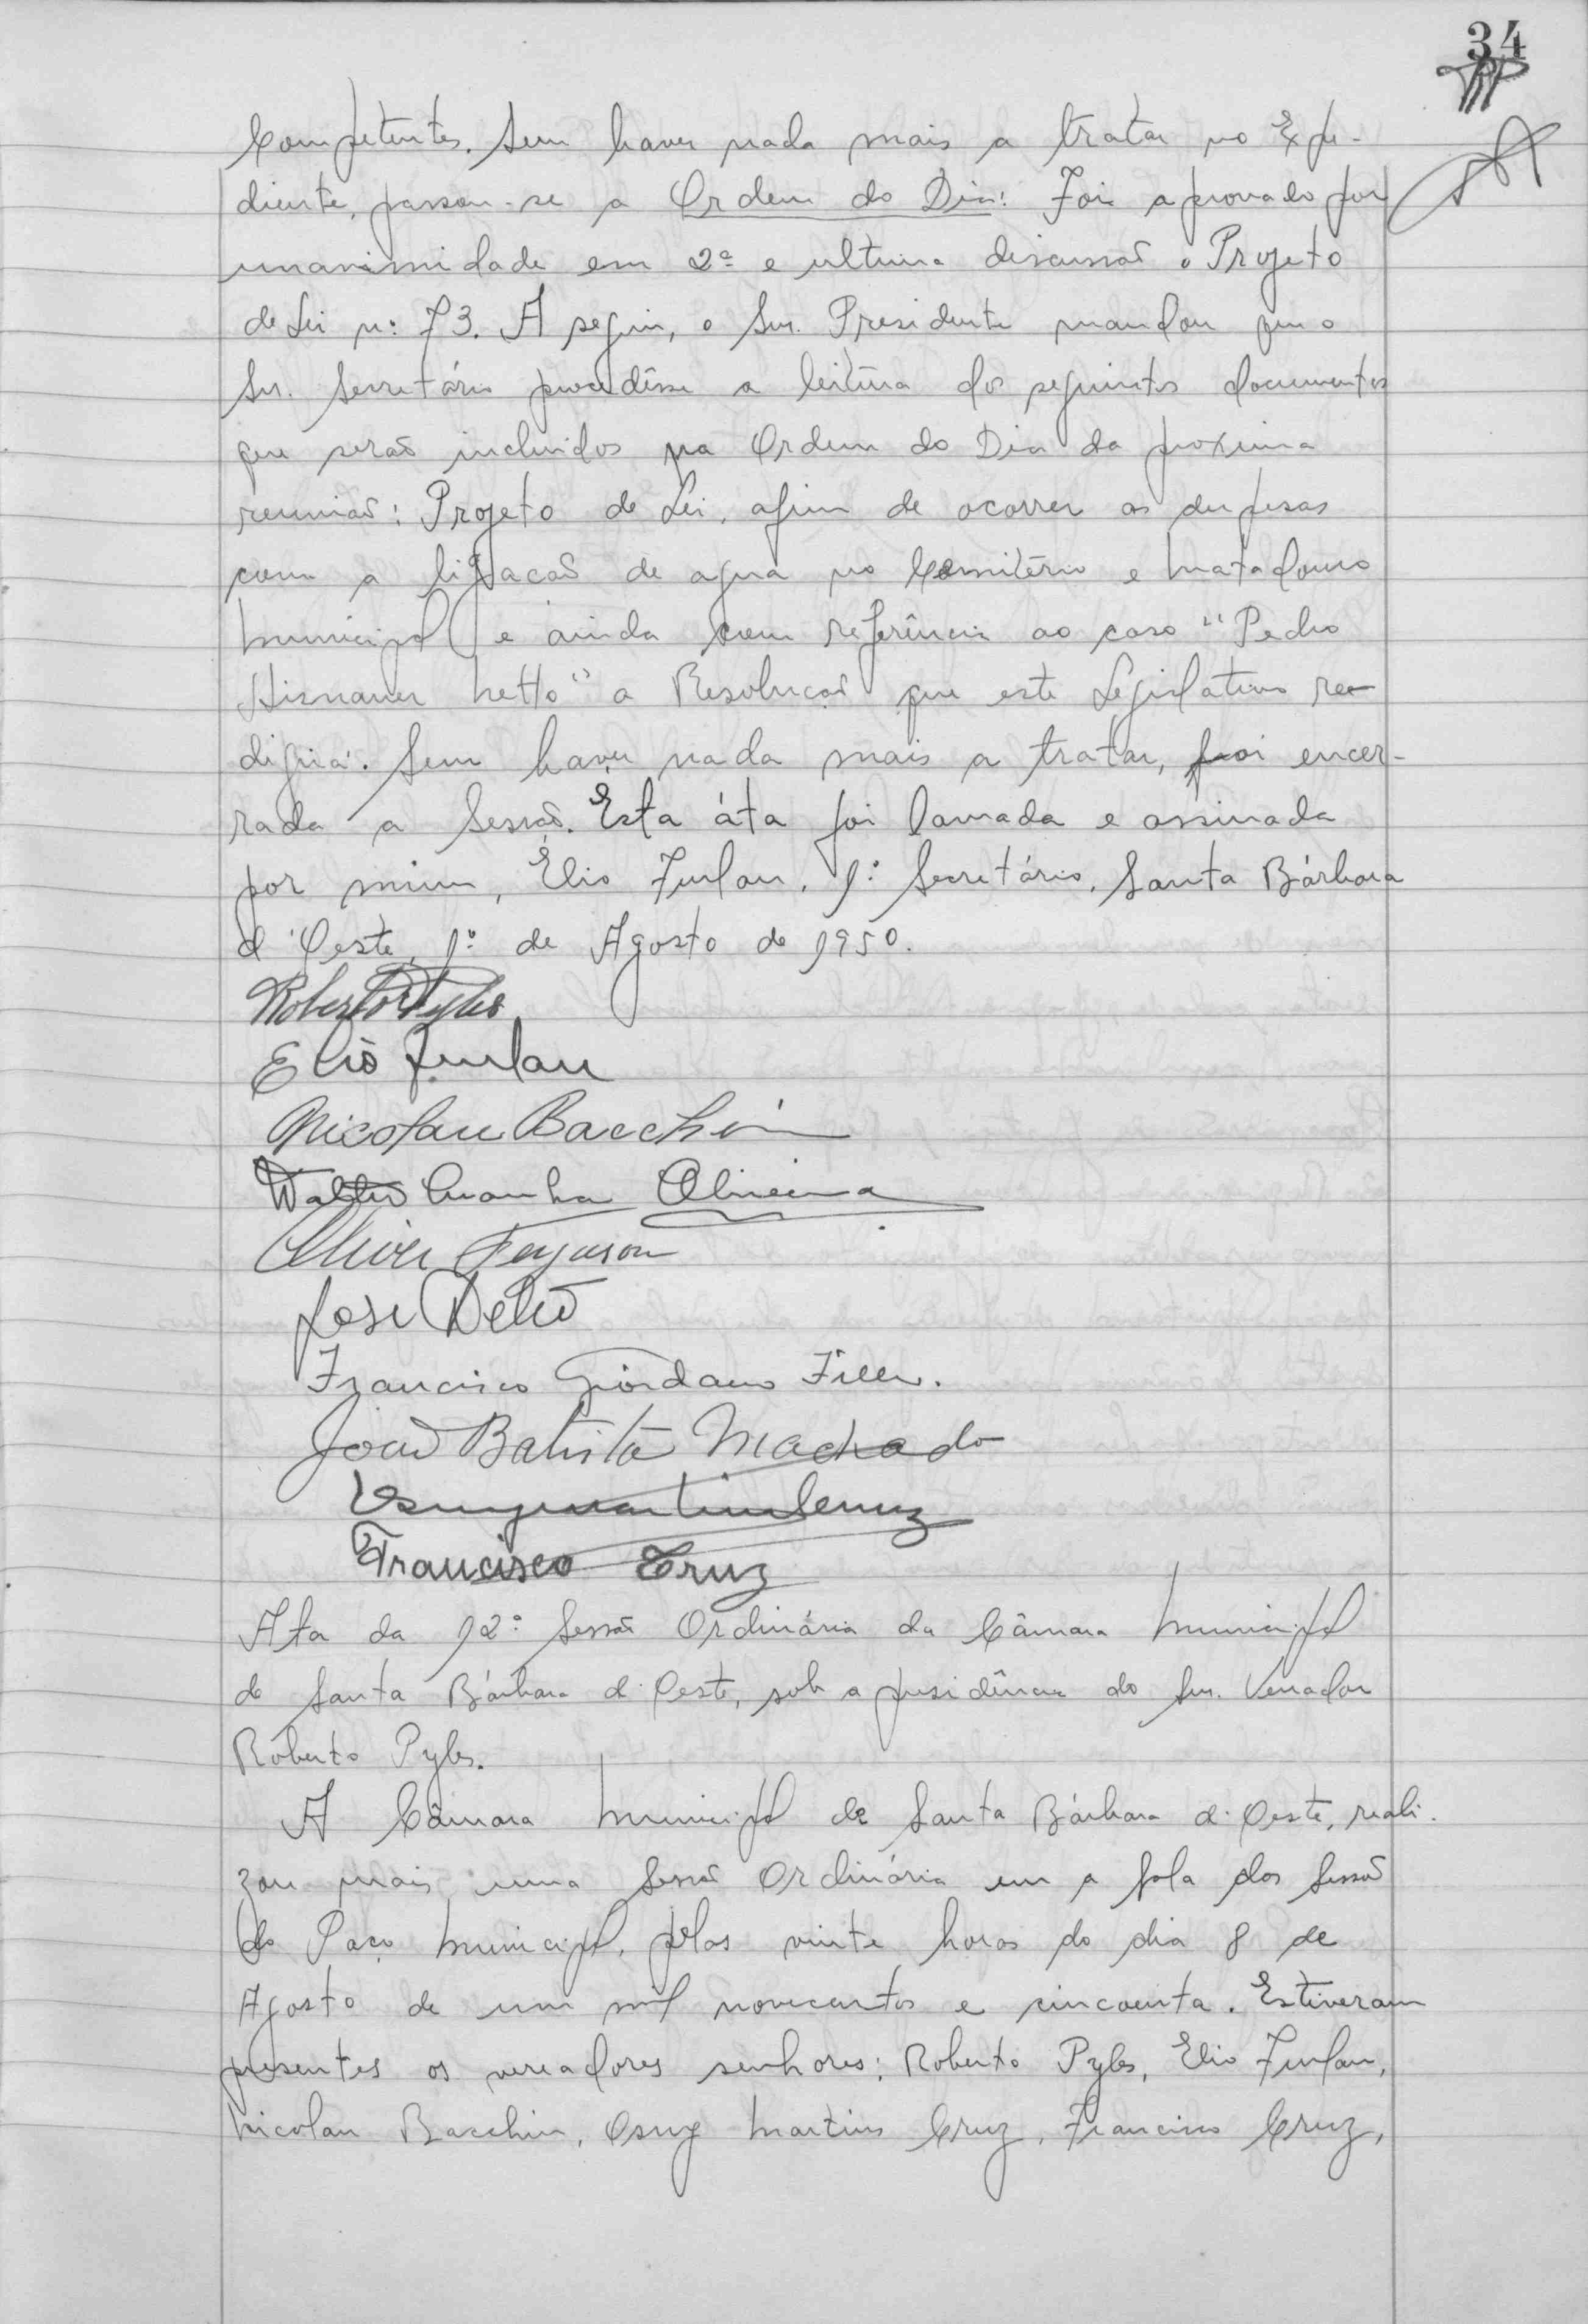 34
Competentes. Sem haver nada mais a tratar no Expe-
diente, passou-se a Ordem do Dia: Foi aprovado por
unanimidade em 2ª e ultima discussão o Projeto
de Lei nº 73. A seguir, o Snr. Presidente mandou que o
Snr. Secretário procedêsse a leitura dos seguintes documentos
que serão incluidos na Ordem do Dia da proxima
reunião: Projeto de Lei, afim de ocorrer as despesas
com a ligacão de agua no Cemitério e Matadouro
Municipal e ainda com referência ao caso "Pedro
Netto" a Resolucão que este Legislativo re-
digirá. Sem haver nada mais a tratar, foi encer-
rada a Sessão. Esta áta foi lavrada e assinada
por mim, Élio Furlan, 1º Secretário. Santa Bárbara
d'Oeste, 1º de Agosto de 1950.
Roberto Pyles
Elio Furlan
Nicolau Bacchin
Walter Aranha Oliveira
Oliver Ferguson
José Deltó
Francisco Giordano Filho.
João Batista Machado
Osny Martins Cruz
Francisco Cruz
Ata da 12ª Sessão Ordinária da Câmara Municipal
de Santa Bárbara d'Oeste, sob a presidência do Snr. Vereador
Roberto Pyles.
A Câmara Municipal de Santa Bárbara d'Oeste, reali-
zou mais uma Sessão Ordinária em a Sala das Sessão
do Paço Municipal, pelas vinte horas do dia 8 de
Agosto de um mil novecentos e cincoenta. Estiveram
presentes os vereadores senhores: Roberto Pyles, Elio Furlan,
Nicolau Bacchin, Osny Martins Cruz, Francisco Cruz,